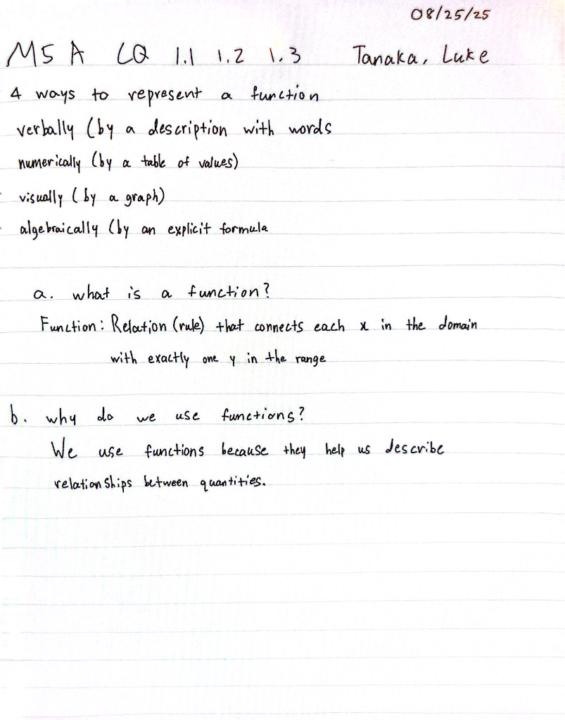 08/25/25
M5A CQ 1.1 1.2 1.3 Tanaka, Luke
4 ways to represent a function
verbally (by a description with words
numerically (by a table of values)
visually (by a graph)
algebraically (by an explicit formula
a. what is a function?
Function: Relation (rule) that connects each x in the domain
with exactly one y in the range
b. why do we use functions?
We use functions because they help us describe
relationships between quantities.